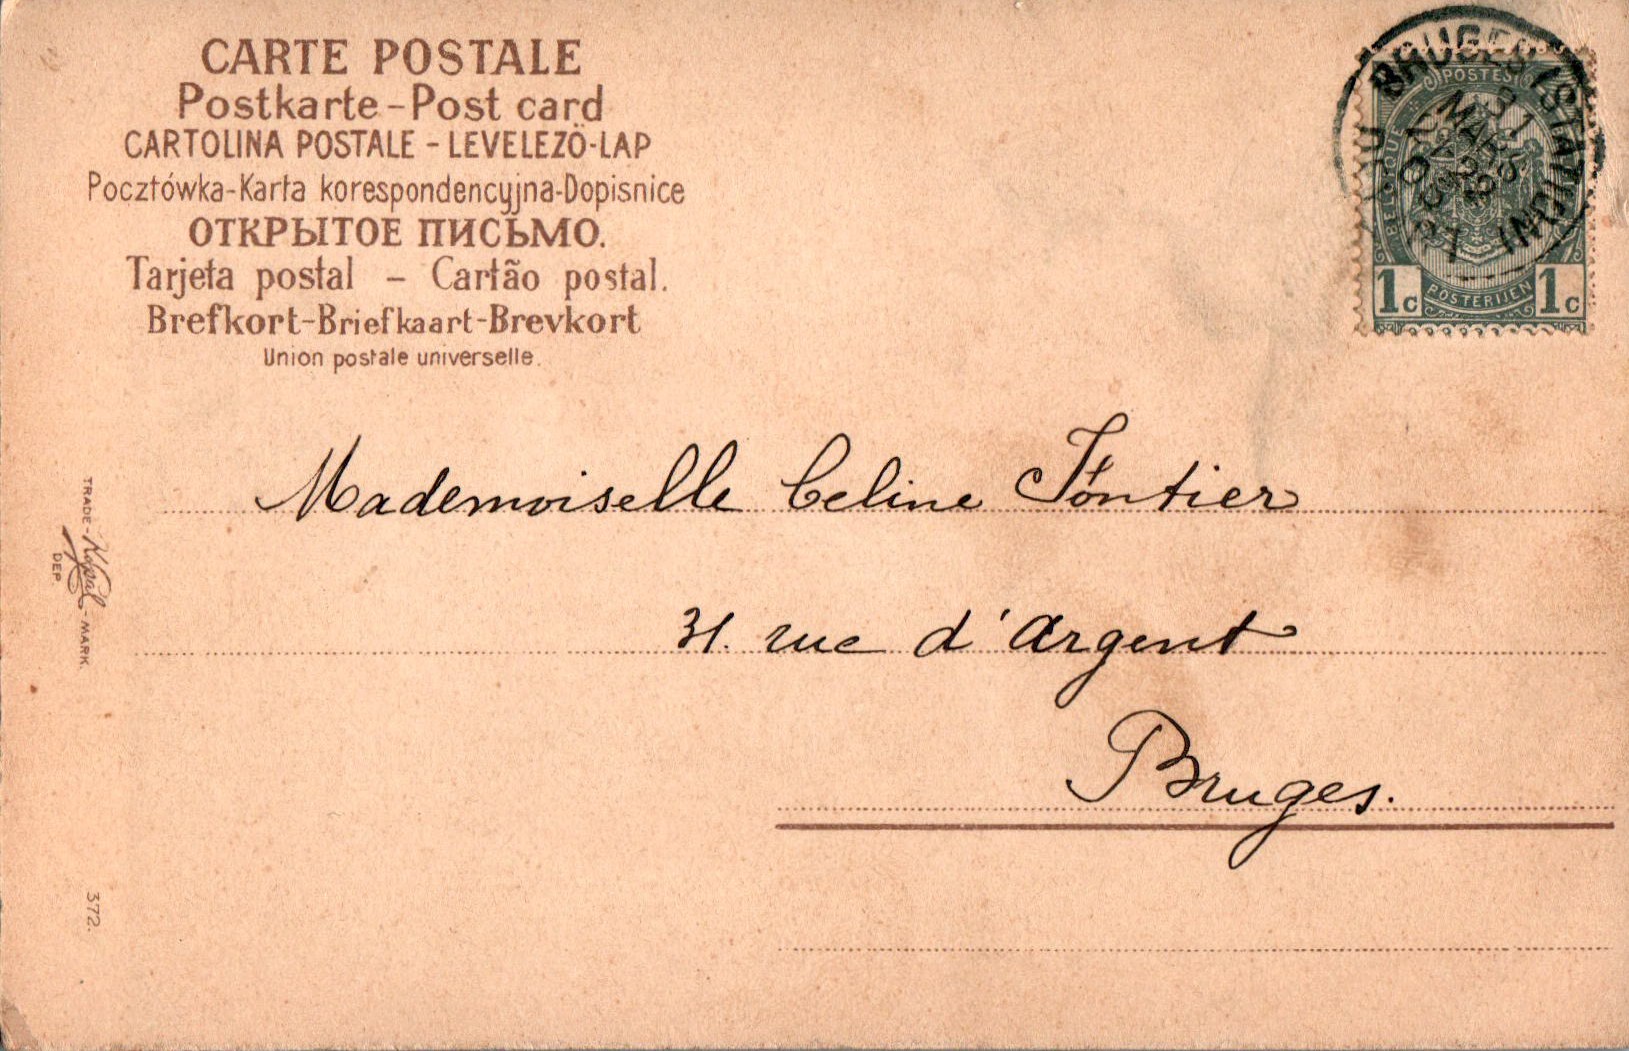 CARTE POSTALE
Postkarte - Post card
CARTOLINA POSTALE - LEVELEZÖ-LAP
Pocztówka-Karta korespondencyjna-Dopisnice
ОТКРЫТОЕ ПИСЬМО.
Tarjeta postal - Cartão postal.
Brefkort-Briefkaart-Brevkort
Union postale universelle.
BRUGES (STATION)
POSTES
BELGIQUE
31
MARS
1 c
POSTERIJEN
1 c
Mademoiselle Celine Fontier
31. rue d'Argent
Bruges.
TRADE - Kopal - MARK.
DEP.
372.